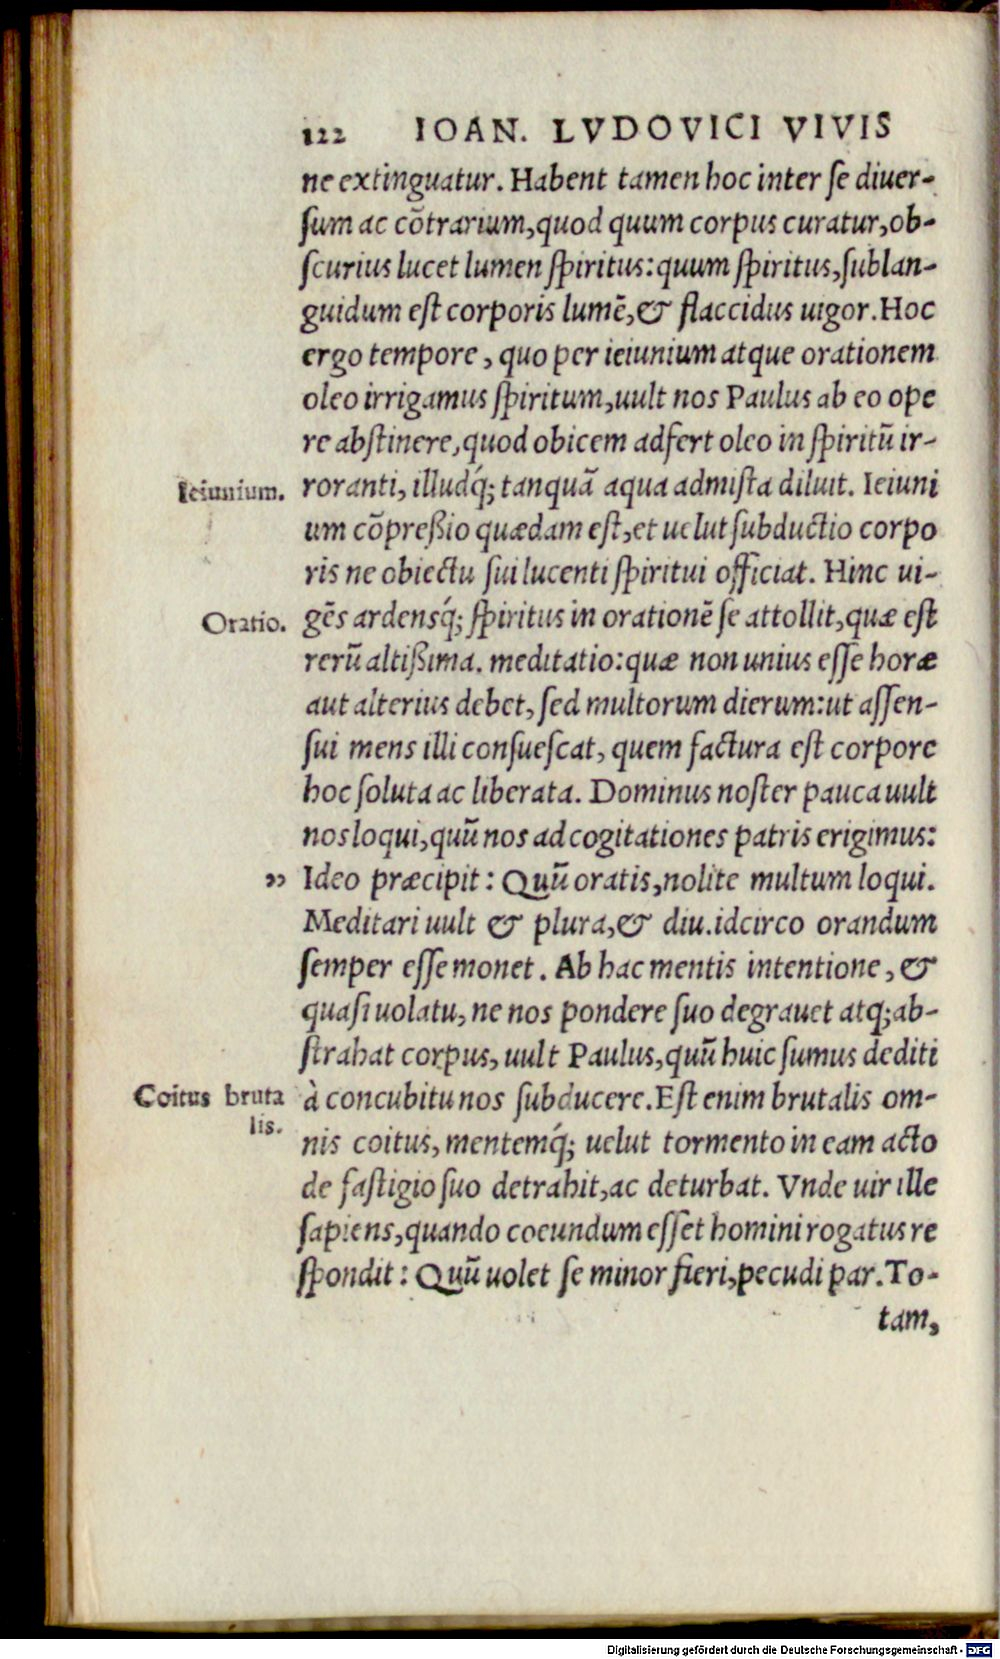 122 IOAN. LVDOVICI VIVIS
ne extinguatur. Habent tamen hoc inter ſe diuer-
ſum ac cõtrarium, quod quum corpus curatur, ob-
ſcurius lucet lumen ſpiritus: quum ſpiritus, ſublan-
guidum eſt corporis lumẽ, & flaccidus uigor. Hoc
ergo tempore, quo per ieiunium atque orationem
oleo irrigamus ſpiritum, uult nos Paulus ab eo ope
re abſtinere, quod obicem adfert oleo in ſpiritũ ir-
Ieiunium. roranti, illudq́; tanquã aqua admiſta diluit. Ieiuni
um cõpreßio quædam eſt, et uelut ſubductio corpo
ris ne obiectu ſui lucenti ſpiritui officiat. Hinc ui-
Oratio. gẽs ardensq́; ſpiritus in orationẽ ſe attollit, quæ eſt
rerũ altißima. meditatio: quæ non unius eſſe horæ
aut alterius debet, ſed multorum dierum: ut aſſen-
ſui mens illi conſueſcat, quem factura eſt corpore
hoc ſoluta ac liberata. Dominus noſter pauca uult
nos loqui, quũ nos ad cogitationes patris erigimus:
„ Ideo præcipit: Quũ oratis, nolite multum loqui.
Meditari uult & plura, & diu. idcirco orandum
ſemper eſſe monet. Ab hac mentis intentione, &
quaſi uolatu, ne nos pondere ſuo degrauet atq; ab-
ſtrahat corpus, uult Paulus, quũ huic ſumus dediti
Coitus bruta à concubitu nos ſubducere. Eſt enim brutalis om-
lis. nis coitus, mentemq́; uelut tormento in eam acto
de faſtigio ſuo detrahit, ac deturbat. Vnde uir ille
ſapiens, quando coeundum eſſet homini rogatus re
ſpondit: Quũ uolet ſe minor fieri, pecudi par. To-
tam,
Digitalisierung gefördert durch die Deutsche Forschungsgemeinschaft - DFG